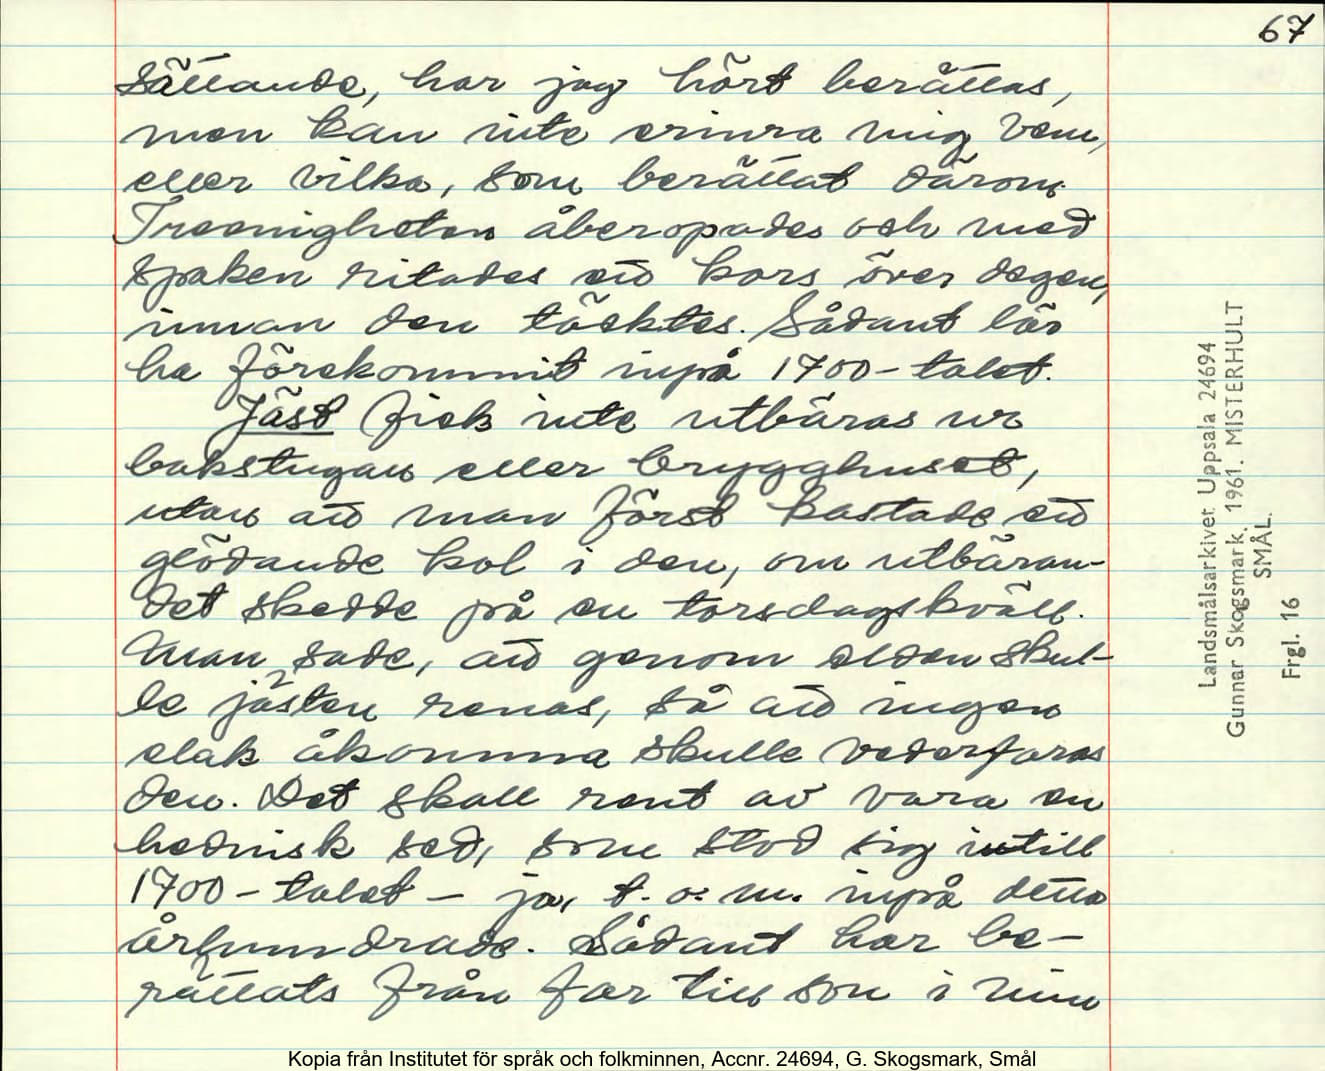 67
sättande, har jag hört berättas,
men kan inte erinra mig vem,
eller vilka, som berättat därom.
Treenigheten åberopades och med
spaken ritades ett kors över degen,
innan den täcktes. Sådant lär
ha förekommit inpå 1700-talet.
Jäst fick inte utbäras ur
bakstugan eller brygghuset,
utan att man först kastade ett
glödande kol i den, om utbäran-
det skedde på en torsdagskväll.
Man sade, att genom elden skul-
le jästen renas, så att ingen
elak åkomma skulle vederfaras
den. Det skall rent av vara en
hednisk sed, som stod sig intill
1700-talet - ja, t.o.m. inpå detta
århundrade. Sådant har be-
rättats från far till son i min
Landsmålsarkivet Uppsala 24694
Gunnar Skogsmark. 1961. MISTERHULT
SMÅL.
Frgl. 16
Kopia från Institutet för språk och folkminnen, Accnr. 24694, G. Skogsmark, Smål